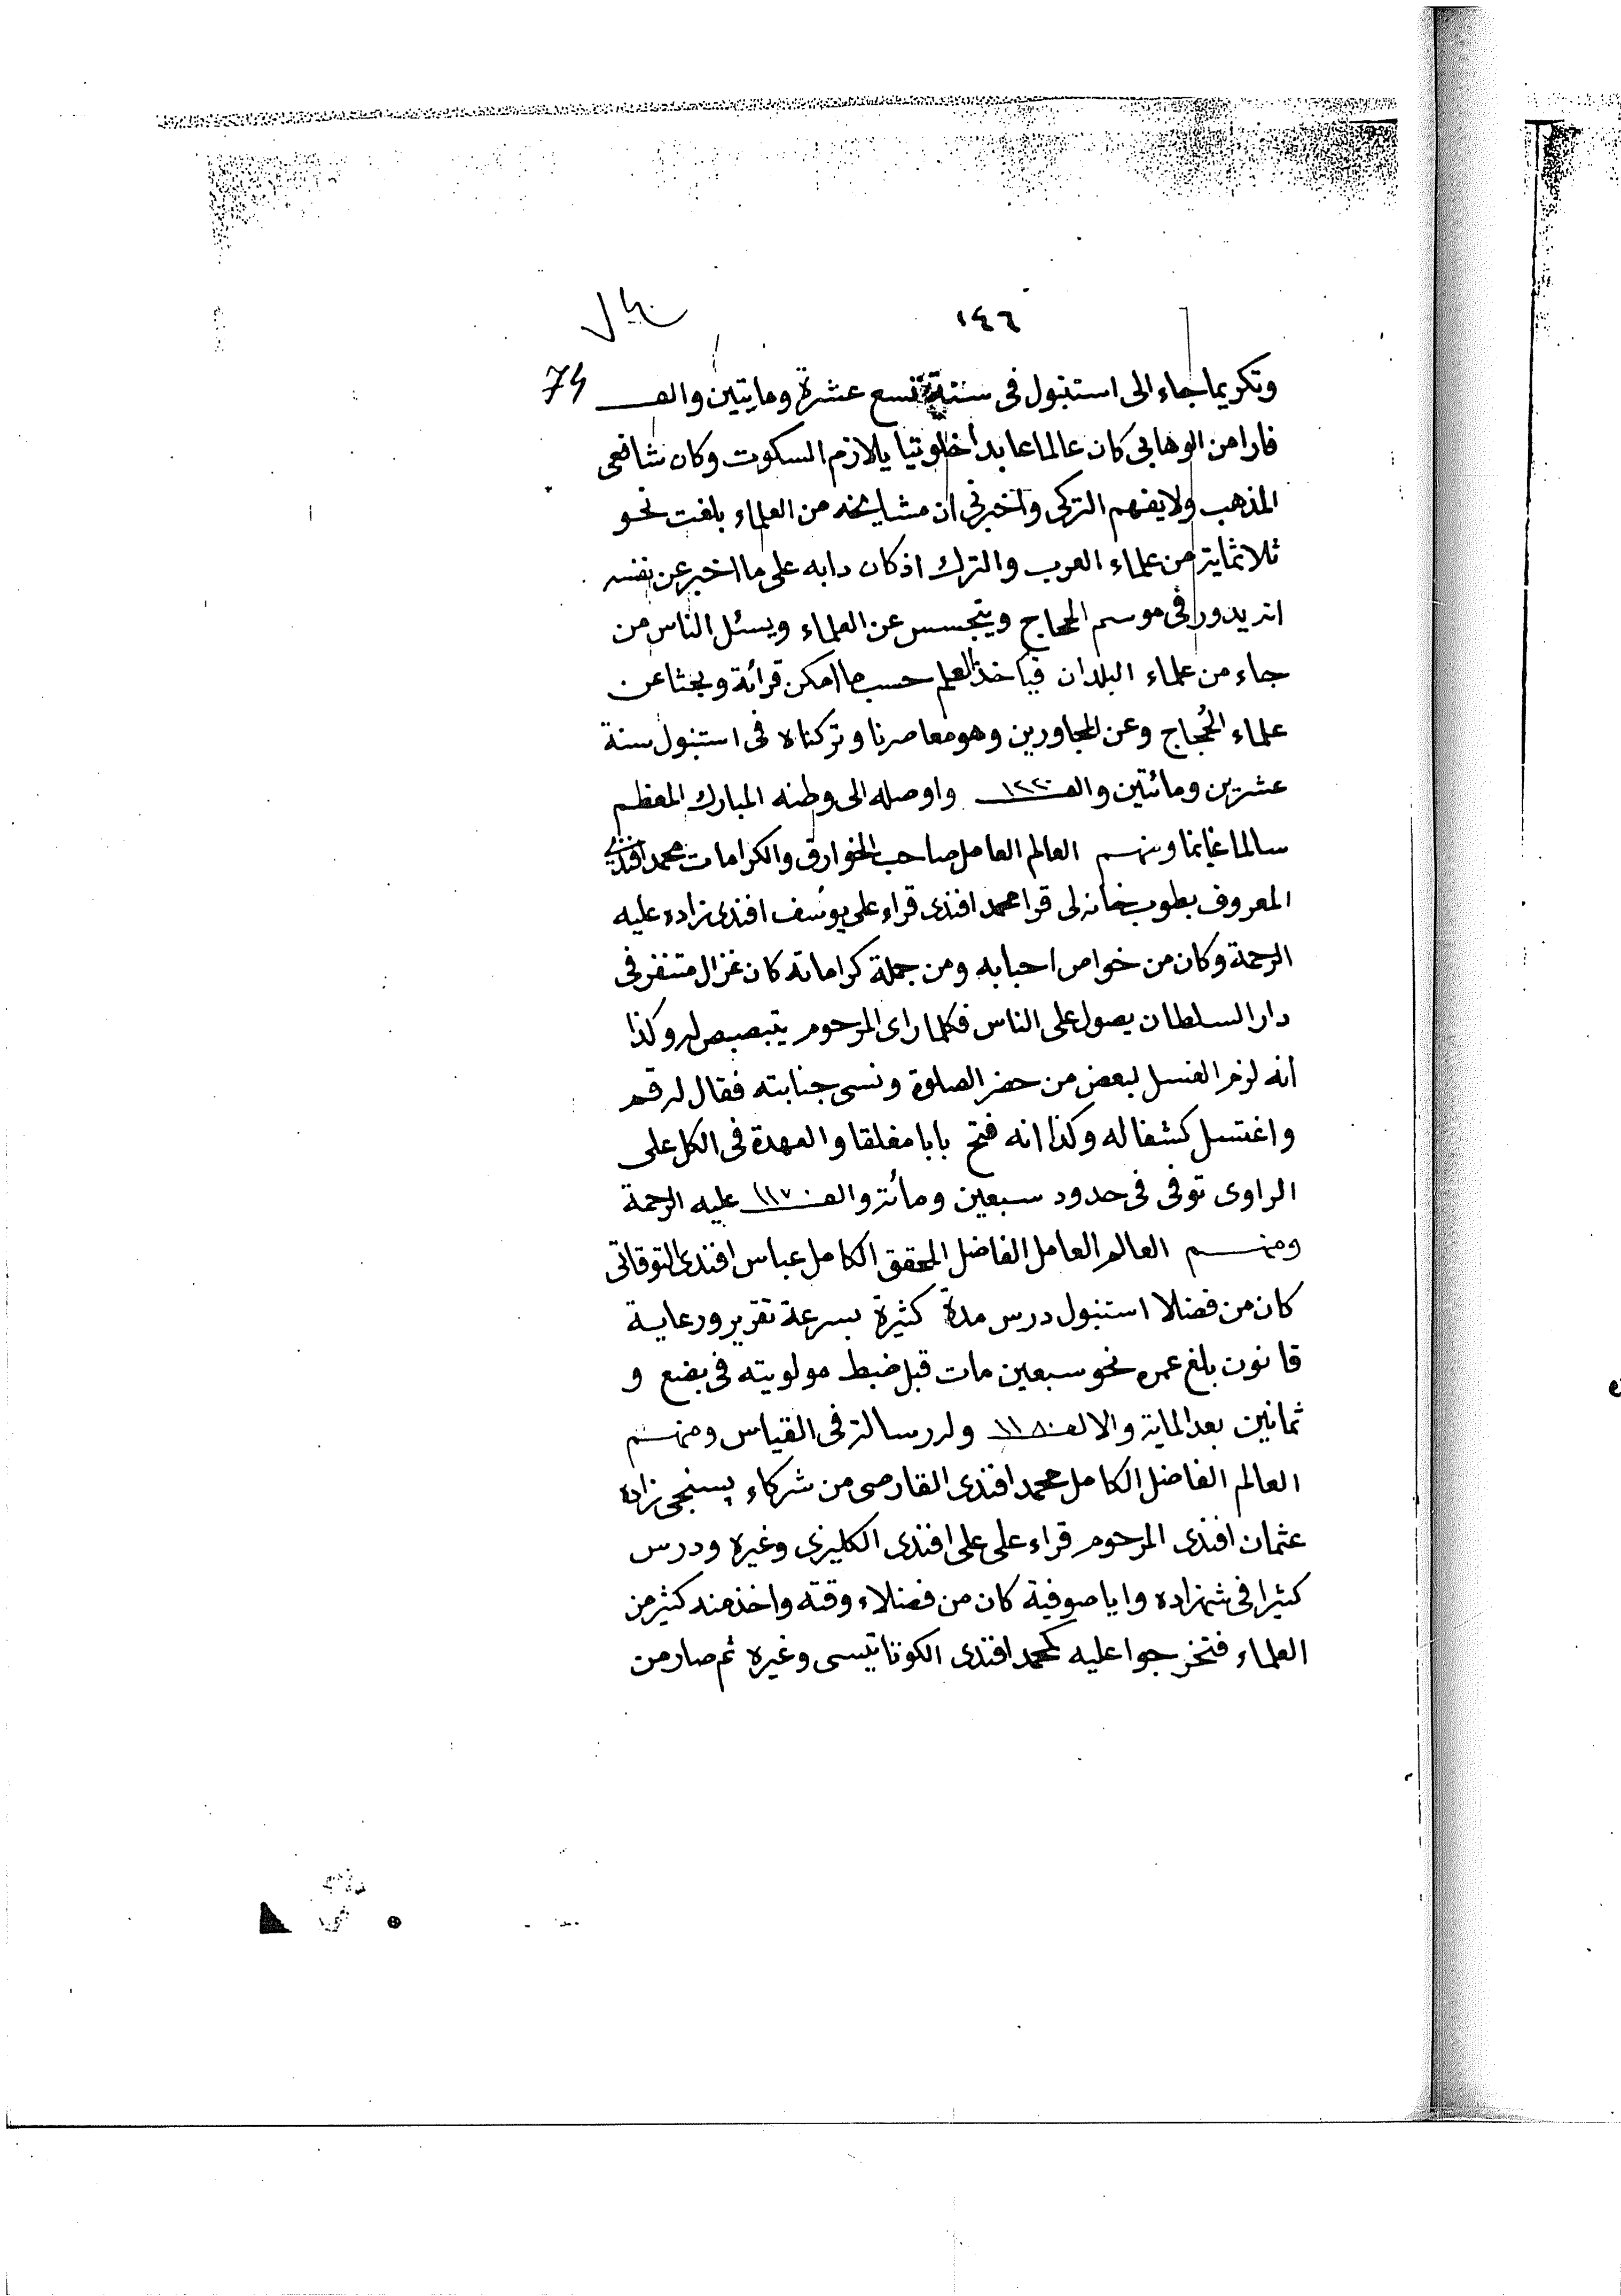 ١٤٦
74
وتكريما جاء الى استنبول فى سنة تسع عشرة ومايتين والف
فارا من الوهابى كان عالما عابدا خلوتيا يلازم السكوت وكان شافعى
المذهب ولا يفهم التركى واخبرنى ان مشايخه من العلماء بلغت نحو
ثلاثماية من علماء العرب والترك اذ كان دابه على ما اخبر عن نفسه
انه يدور فى موسم الحجاج ويتجسس عن العلماء ويسئل الناس من
جاء من علماء البلدان فياخذ العلم حسب ما امكن قرائة وبحثا عن
علماء الحُجاج وعن المجاورين وهو معاصرنا وتركناه فى استنبول سنة
عشرين ومائتين والف ١٢٢٠ واوصله الى وطنه المبارك المعظم
سالما غانما ومنهم العالم العامل صاحب الخوارق والكرامات محمد افندى
المعروف بطوب خانه لى قرا محمد افندى قراء على يوسف افندى زاده عليه
الرحمة وكان من خواص احبابه ومن جملة كراماته كان غزال متنفر فى
دار السلطان يصول على الناس فكلما راى المرحوم يتبصبص له وكذا
انه لزم الغسل لبعض من حضر الصلوة ونسى جنابته فقال له قم
واغتسل كشفا له وكذا انه فتح بابا مغلقا والعهدة فى الكل على
الراوى توفى فى حدود سبعين ومائة والف ١١٧٠ عليه الرحمة
ومنهم العالم العامل الفاضل المحقق الكامل عباس افندى التوقاتى
كان من فضلا استنبول درس مدة كثيرة بسرعة تقرير ورعاية
قانون بلغ عمره نحو سبعين مات قبل ضبط مولويته فى بضع و
ثمانين بعد الماية والالف ١١٨٠ وله رسالة فى القياس ومنهم
العالم الفاضل الكامل محمد افندى القارصى من شركاء پسنجى زاده
عثمان افندى المرحوم قراء على على افندى الكليزى وغيره ودرس
كثيرا فى شهزاده وايا صوفية كان من فضلاء وقته واخذ منه كثير من
العلماء فتخرجوا عليه كمحمد افندى الكوتاتيسى وغيره ثم صار من